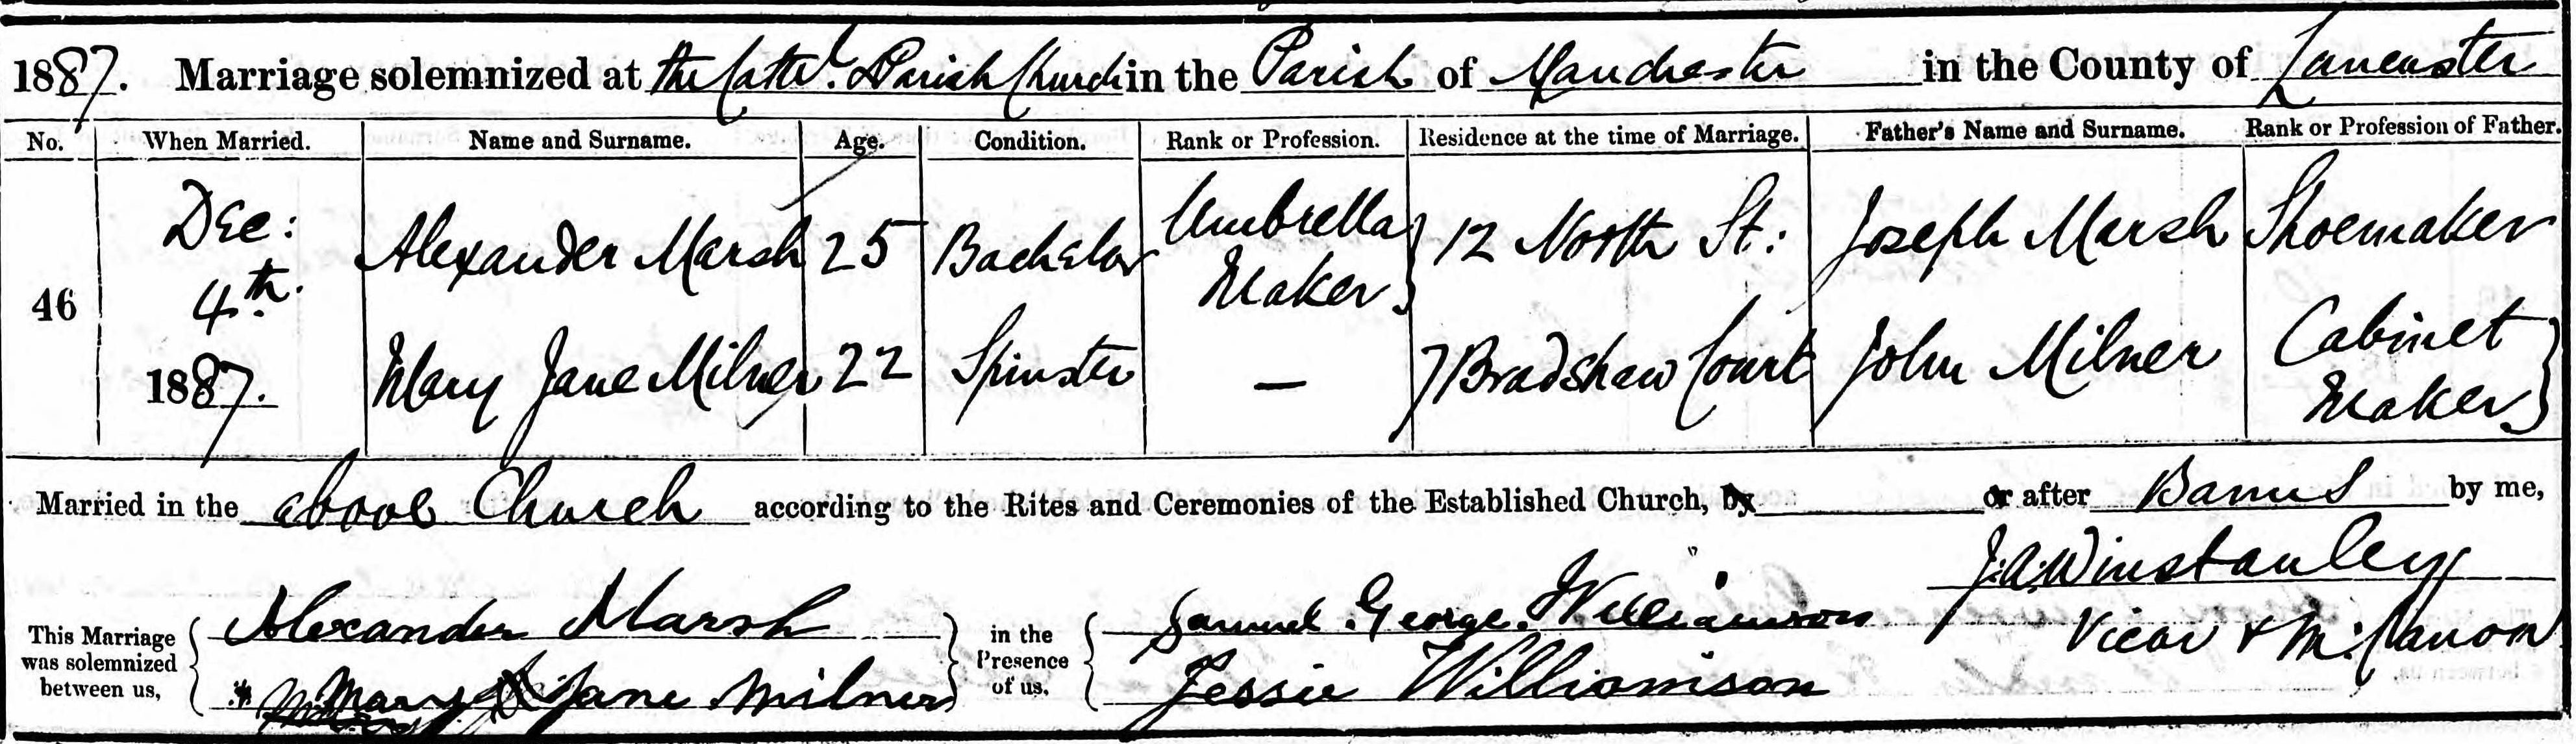 1887. Marriage solemnized at the Cathl. & Parish Church in the Parish of Manchester in the County of Lancaster
No. When Married. Name and Surname. Age. Condition. Rank or Profession. Residence at the time of Marriage. Father's Name and Surname. Rank or Profession of Father.
46 Dec: 4th. 1887.
Alexander Marsh 25 Bachelor Umbrella Maker } 12 North St: Joseph Marsh Shoemaker
Mary Jane Milner 22 Spinster — 7 Bradshaw Court John Milner Cabinet Maker }
Married in the above Church according to the Rites and Ceremonies of the Established Church, by or after Banns by me,
J. A. Winstanley
Vicar & M: Canon
This Marriage was solemnized between us, { Alexander Marsh
Mary Jane Milner }
in the Presence of us, { Samuel George Williamson
Jessie Williamson